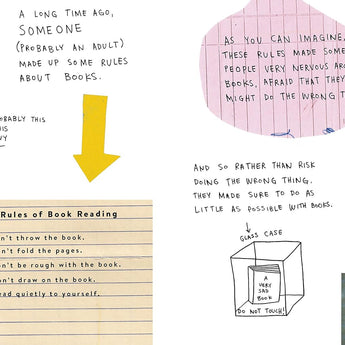 A LONG TIME AGO,
SOMEONE
(PROBABLY AN ADULT)
MADE UP SOME RULES
ABOUT BOOKS.
Rules of Book Reading
n't throw the book.
n't fold the pages.
n't be rough with the book.
n't draw on the book.
ead quietly to yourself.
AS YOU CAN IMAGINE,
THESE RULES MADE SOME
PEOPLE VERY NERVOUS AR
BOOKS, AFRAID THAT THEY
MIGHT DO THE WRONG T
AND SO RATHER THAN RISK
DOING THE WRONG THING.
THEY MADE SURE TO DO AS
LITTLE AS POSSIBLE WITH BOOKS.
GLASS CASE
A
VERY
SAD
BOOK
DO NOT TOUCH!
OBABLY THIS
IS